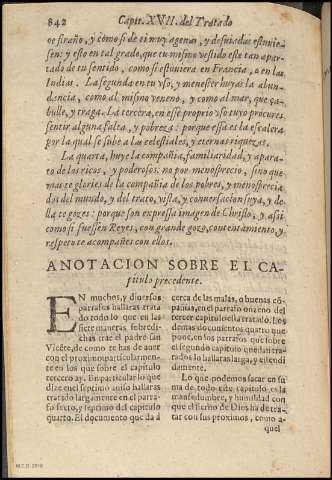 842 Capit. XVII. del Tratado
oe straño, y como si de ti muy agenas, y desuiadas estuuies-
sen: y esto en tal grado, que tu mismo vestido este tan apar-
tado de tu sentido, como si estuuiera en Francia, o en las
Indias. La segunda en tu vso, y menester huyas la abun-
dancia, como al mismo veneno, y como al mar, que ça-
bulle, y traga. La tercera, en esse proprio vso tuyo procures
sentir alguna falta, y pobreza: porque essa es la escalera
por la qual se sube a las celestiales, y eternas riquezas.
La quarta, huye la compañia, familiaridad, y apara-
to de los ricos, y poderosos: no por menosprecio, sino que
mas te glories de la compañia de los pobres, y menosprecia
dos del mundo, y del trato, vista, y conuersacion suya, y de-
lla te gozes: porque son expressa imagen de Christo, y assi
como si fuessen Reyes, con grande gozo, contentamiento, y
respeto te acompañes con ellos.
ANOTACION SOBRE EL CA-
pitulo precedente.
EN muchos, y diuersos
parrafos hallaras trata
do todo lo que en las
siete maneras sobredi-
chas trae el padre san
Vicēte, de como te has de auer
con el proximo: particularmen-
te en los que sobre el capitulo
tercero ay. En particular lo que
dize en el septimo auiso hallaras
tratado largamente en el parra-
fo sexto, y septimo del capitulo
quarto. El documento que da á
cerca de las malas, o buenas cõ-
pañias, en el parrafo onzeno del
tercer capitulo esta la tratado. Los
demas documentos quatro que
pone, en los parrafos que sobre
el segundo capitulo quedan tra-
tados lo hallaras larga, y estendi
damente.
Lo que podemos sacar en su
ma de todo este capitulo, es la
mansedumbre, y humildad con
que el sieruo de Dios ha de tra-
tar con sus proximos, como a-
quel